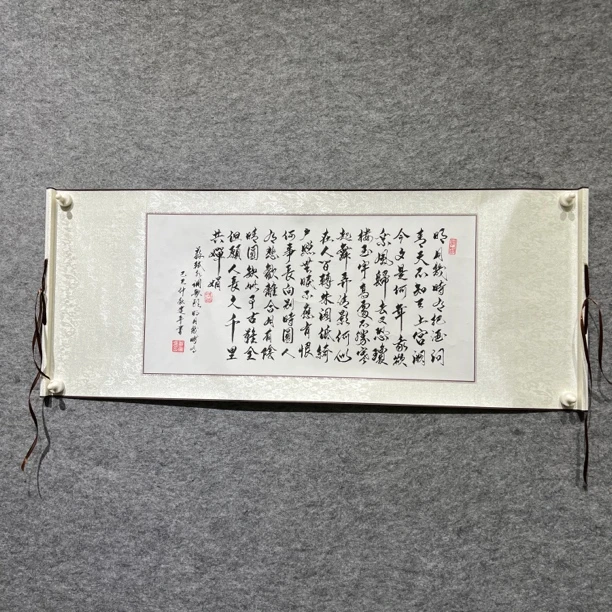 明月幾時有把酒問
青天不知天上宮闕
今夕是何年我欲
乘風歸去又恐瓊
樓玉宇高處不勝寒
起舞弄清影何似
在人間轉朱閣低綺
戶照無眠不應有恨
何事長向別時圓人
有悲歡離合月有陰
晴圓缺此事古難全
但願人長久千里
共嬋娟